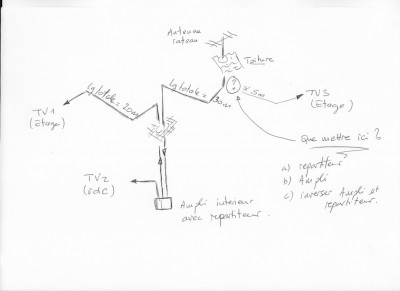 Antenne
rateau
Toiture
lg totale = 20m
lg totale = 30m
?
x 5m
TV1
(Etage)
TV3
(Etage)
Que mettre ici ?
a) repartiteur
b) Ampli
c) inverser Ampli et
repartiteur.
TV2
(rdc)
Ampli interieur
avec repartiteur.